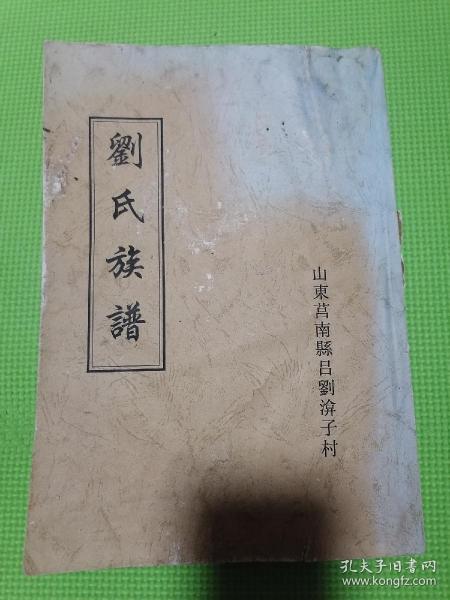 劉氏族譜
山東莒南縣吕劉渰子村
孔夫子旧书网
www.kongfz.com